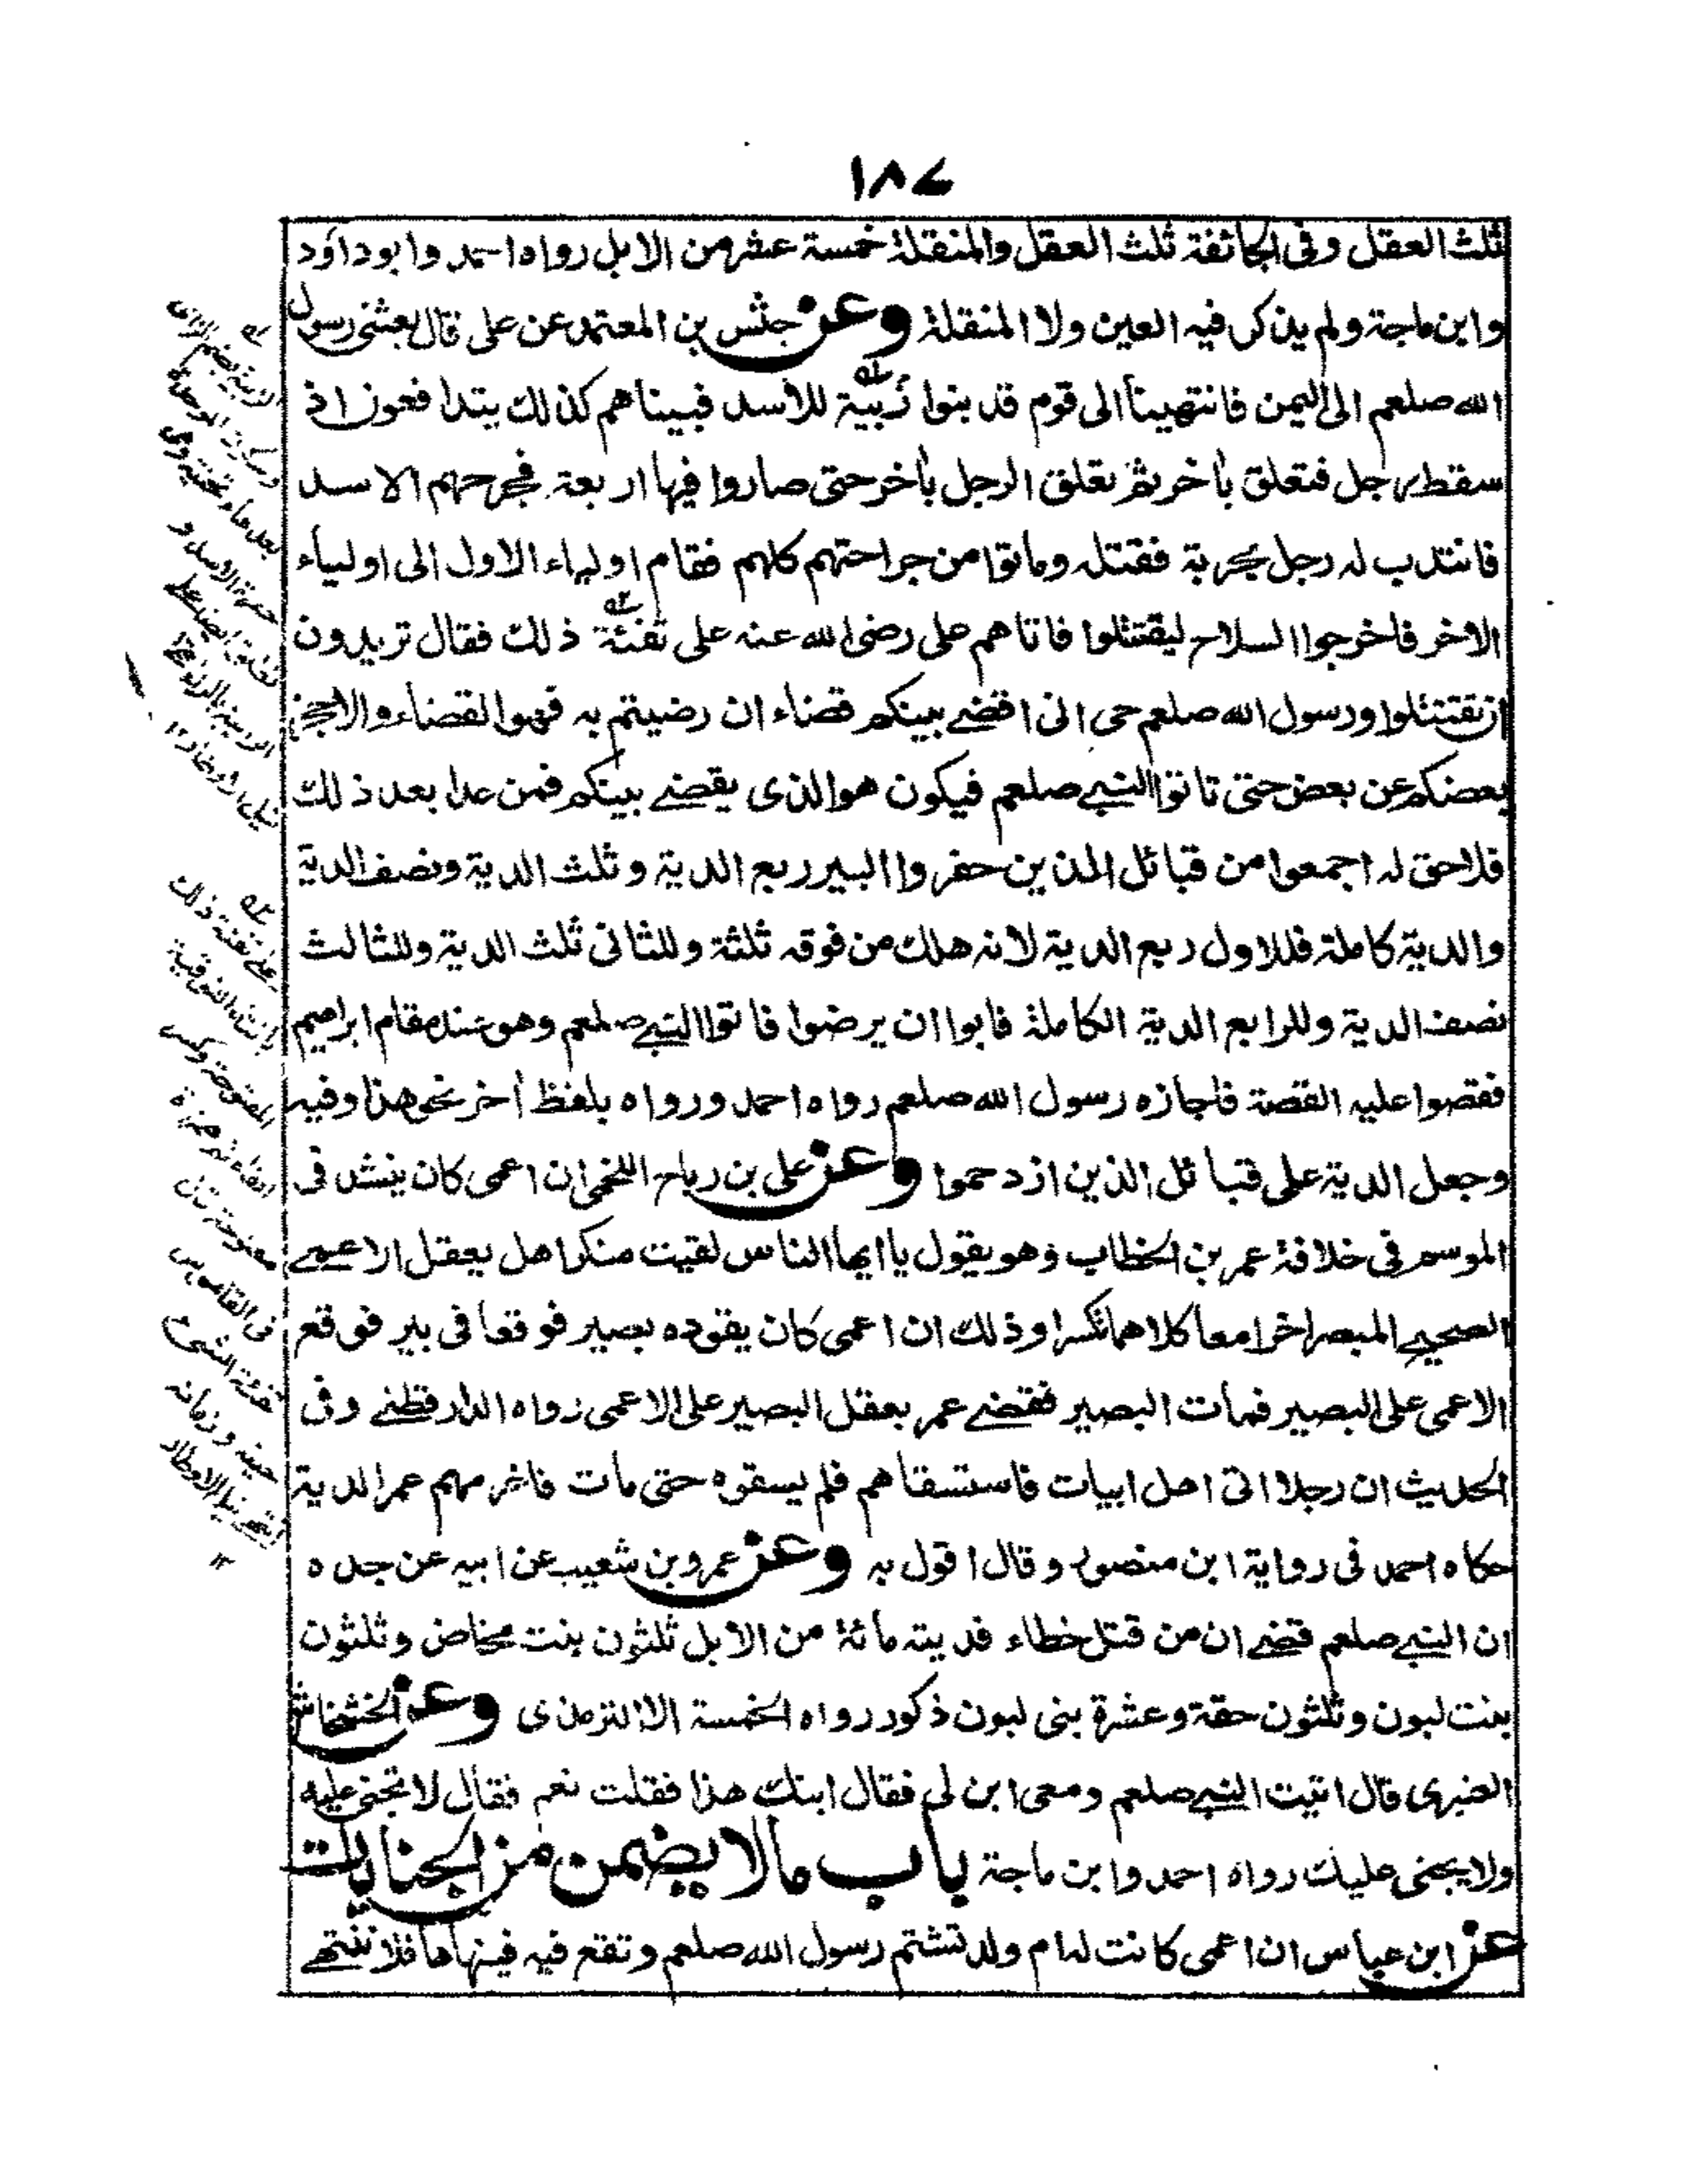 ١٨٧
ثلث العقل وفى الجائفة ثلث العقل والمنقلة خمسة عشر من الابل رواه احمد وابوداؤد
وابن ماجة ولم يذكر فيه العين ولا المنقلة وعن حنش بن المعتمد عن على قال بعثنى رسول
الله صلعم الى اليمن فانتهينا الى قوم قد بنوا زبية للاسد فبيناهم كذلك يتدافعون اذ
سقط رجل فتعلق بأخر ثم تعلق الرجل بأخر حتى صاروا فيها اربعة فجرحهم الاسد
فانتدب له رجل بحربة فقتله وماتوا من جراحتهم كلهم فقام اولياء الاول الى اولياء
الاخر فاخرجوا السلاح ليقتتلوا فاتاهم على رضى الله عنه على تفئة ذلك فقال تريدون
ان تقتتلوا ورسول الله صلعم حى انى اقضے بينكم قضاء ان رضيتم به فهو القضاء والا حجز
بعضكم عن بعض حتى تاتوا النبے صلعم فيكون هو الذى يقضے بينكم فمن عدا بعد ذلك
فلا حق له اجمعوا من قبائل الذين حفروا البير ربع الدية وثلث الدية ونصف الدية
والدية كاملة فللاول ربع الدية لانه هلك من فوقه ثلثة وللثانى ثلث الدية وللثالث
نصف الدية وللرابع الدية الكاملة فابوا ان يرضوا فاتوا النبے صلعم وهو عند مقام ابراهيم
فقصوا عليه القصة فاجازه رسول الله صلعم رواه احمد ورواه بلفظ أخر نحو هذا وفيه
وجعل الدية على قبائل الذين ازدحموا وعن على بن رباح اللخمى ان اعمى كان ينشد فى
الموسم فى خلافة عمر بن الخطاب وهو يقول يا ايها الناس لقيت منكرا هل يعقل الاعمے
الصحيح المبصرا خرا معا كلاهما تكسرا وذلك ان اعمى كان يقوده بصير فوقعا فى بير فوقع
الاعمى على البصير فمات البصير فقضے عمر بعقل البصير على الاعمى رواه الدارقطنے وفى
الحديث ان رجلا اتى اهل ابيات فاستسقاهم فلم يسقوه حتى مات فاغرمهم عمر الدية
حكاه احمد فى رواية ابن منصور وقال اقول به وعن عمرو بن شعيب عن ابيه عن جده
ان النبے صلعم قضے ان من قتل خطاء فديته مائة من الابل ثلثون بنت مخاض وثلثون
بنت لبون وثلثون حقة وعشرة بنى لبون ذكور رواه الخمسة الا الترمذى وعن الخشخاش
العنبرى قال اتيت النبے صلعم ومعى ابن لى فقال ابنك هذا فقلت نعم فقال لا تجنى عليه
ولا يجنى عليك رواه احمد وابن ماجة باب مالا يضمن من الجنايات
عن ابن عباس ان اعمى كانت له ام ولد تشتم رسول الله صلعم وتقع فيه فينهاها فلا تنتهے
على تفئة ذلك
فى القاموس
تفئة الشئ
حينه وزمانه